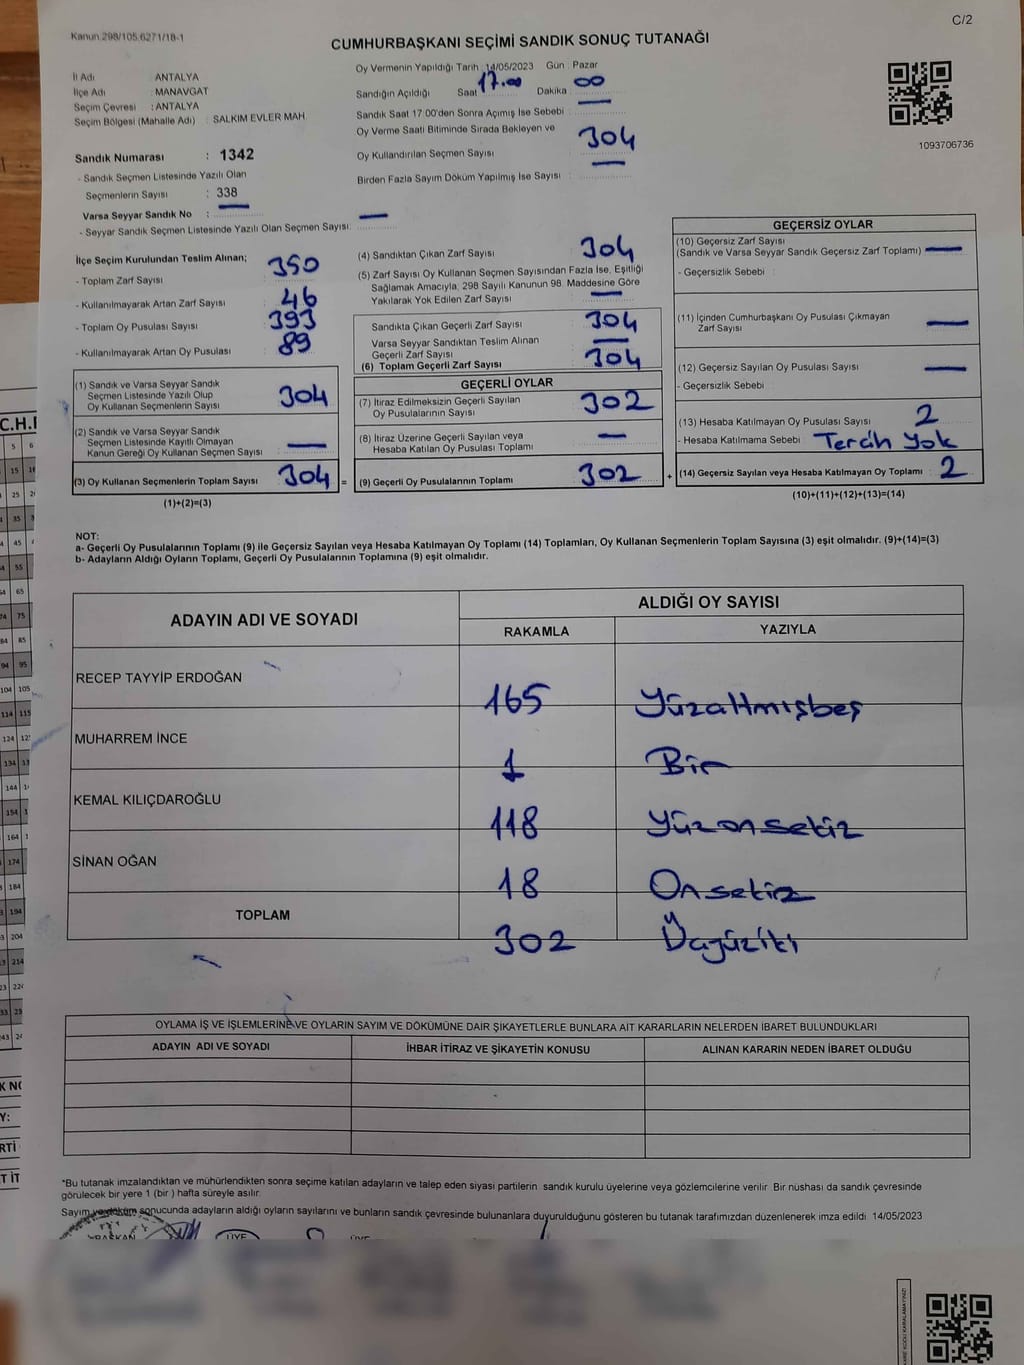 C/2
Kanun 298/105.6271/18-1
CUMHURBAŞKANI SEÇİMİ SANDIK SONUÇ TUTANAĞI
İl Adı : ANTALYA
İlçe Adı : MANAVGAT
Seçim Çevresi : ANTALYA
Seçim Bölgesi (Mahalle Adı) : SALKIM EVLER MAH.
Sandık Numarası : 1342
- Sandık Seçmen Listesinde Yazılı Olan
Seçmenlerin Sayısı : 338
Varsa Seyyar Sandık No : —
- Seyyar Sandık Seçmen Listesinde Yazılı Olan Seçmen Sayısı : —
Oy Vermenin Yapıldığı Tarih : 14/05/2023 Gün : Pazar
Sandığın Açıldığı Saat 17.00 Dakika : 00
Sandık Saat 17 00'den Sonra Açımış İse Sebebi : —
Oy Verme Saati Bitiminde Sırada Bekleyen ve
Oy Kullandırılan Seçmen Sayısı : 304
Birden Fazla Sayım Döküm Yapılmış İse Sayısı : —
1093706736
İlçe Seçim Kurulundan Teslim Alınan;
- Toplam Zarf Sayısı : 350
- Kullanılmayarak Artan Zarf Sayısı : 46
- Toplam Oy Pusulası Sayısı : 393
- Kullanılmayarak Artan Oy Pusulası : 89
(1) Sandık ve Varsa Seyyar Sandık
Seçmen Listesinde Yazılı Olup
Oy Kullanan Seçmenlerin Sayısı : 304
(2) Sandık ve Varsa Seyyar Sandık
Seçmen Listesinde Kayıtlı Olmayan
Kanun Gereği Oy Kullanan Seçmen Sayısı : —
(3) Oy Kullanan Seçmenlerin Toplam Sayısı : 304 =
(1)+(2)=(3)
(4) Sandıktan Çıkan Zarf Sayısı : 304
(5) Zarf Sayısı Oy Kullanan Seçmen Sayısından Fazla İse, Eşitliği
Sağlamak Amacıyla; 298 Sayılı Kanunun 98. Maddesine Göre
Yakılarak Yok Edilen Zarf Sayısı : —
Sandıkta Çıkan Geçerli Zarf Sayısı : 304
Varsa Seyyar Sandıktan Teslim Alınan
Geçerli Zarf Sayısı : —
(6) Toplam Geçerli Zarf Sayısı : 304
GEÇERLİ OYLAR
(7) İtiraz Edilmeksizin Geçerli Sayılan
Oy Pusulalarının Sayısı : 302
(8) İtiraz Üzerine Geçerli Sayılan veya
Hesaba Katılan Oy Pusulası Toplamı : —
(9) Geçerli Oy Pusulalarının Toplamı : 302 +
GEÇERSİZ OYLAR
(10) Geçersiz Zarf Sayısı
(Sandık ve Varsa Seyyar Sandık Geçersiz Zarf Toplamı) : —
- Geçersizlik Sebebi :
(11) İçinden Cumhurbaşkanı Oy Pusulası Çıkmayan
Zarf Sayısı : —
(12) Geçersiz Sayılan Oy Pusulası Sayısı : —
- Geçersizlik Sebebi :
(13) Hesaba Katılmayan Oy Pusulası Sayısı : 2
- Hesaba Katılmama Sebebi : Tercih Yok
(14) Geçersiz Sayılan veya Hesaba Katılmayan Oy Toplamı : 2
(10)+(11)+(12)+(13)=(14)
NOT:
a- Geçerli Oy Pusulalarının Toplamı (9) ile Geçersiz Sayılan veya Hesaba Katılmayan Oy Toplamı (14) Toplamları, Oy Kullanan Seçmenlerin Toplam Sayısına (3) eşit olmalıdır. (9)+(14)=(3)
b- Adayların Aldığı Oyların Toplamı, Geçerli Oy Pusulalarının Toplamına (9) eşit olmalıdır.
ADAYIN ADI VE SOYADI ALDIĞI OY SAYISI
RAKAMLA YAZIYLA
RECEP TAYYİP ERDOĞAN 165 Yüzaltmışbeş
MUHARREM İNCE 1 Bir
KEMAL KILIÇDAROĞLU 118 Yüzonsekiz
SİNAN OĞAN 18 Onsekiz
TOPLAM 302 Üçyüziki
OYLAMA İŞ VE İŞLEMLERİNE VE OYLARIN SAYIM VE DÖKÜMÜNE DAİR ŞİKAYETLERLE BUNLARA AİT KARARLARIN NELERDEN İBARET BULUNDUKLARI
ADAYIN ADI VE SOYADI İHBAR İTİRAZ VE ŞİKAYETİN KONUSU ALINAN KARARIN NEDEN İBARET OLDUĞU
*Bu tutanak imzalandıktan ve mühürlendikten sonra seçime katılan adayların ve talep eden siyasi partilerin sandık kurulu üyelerine veya gözlemcilerine verilir. Bir nüshası da sandık çevresinde
görülecek bir yere 1 (bir) hafta süreyle asılır.
Sayım ve döküm sonucunda adayların aldığı oyların sayılarını ve bunların sandık çevresinde bulunanlara duyurulduğunu gösteren bu tutanak tarafımızdan düzenlenerek imza edildi. 14/05/2023
BAŞKAN ÜYE ÜYE